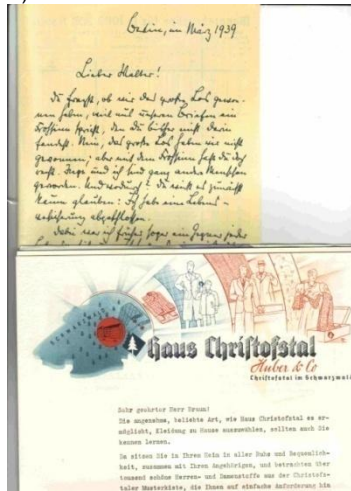 Berlin, im März 1939
Lieber Walter!
Du fragst, ob wir das große Los gewon-
nen haben, weil aus unseren Briefen ein
Frohsinn spricht, den du bisher nicht darin
fandest. Nein, das große Los haben wir nicht
gewonnen; aber mit dem Frohsinn hast du
recht. Inge und ich sind ganz andere Menschen
geworden. Und wodurch - du wirst es zunächst
kaum glauben: Ich habe eine Lebens-
versicherung abgeschlossen.
Dabei war ich früher sogar ein Gegner jeder
SCHWARZWALD
Haus Christofstal
Huber & Co
Christofstal im Schwarzwald
Sehr geehrter Herr Braun!
Die angenehme, beliebte Art, wie Haus Christofstal es er-
möglicht, Kleidung zu Hause auszuwählen, sollten auch Sie
kennen lernen.
Da sitzen Sie in Ihrem Heim in aller Ruhe und Bequemlich-
keit, zusammen mit Ihren Angehörigen, und betrachten über
tausend schöne Herren- und Damenstoffe aus der Christofs-
taler Musterkiste, die Ihnen auf einfache Anforderung hin